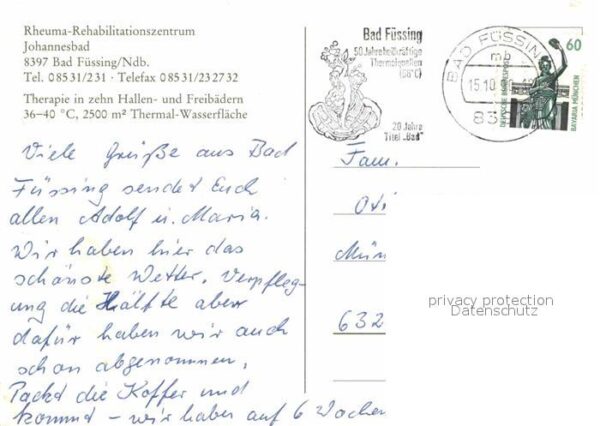 Rheuma-Rehabilitationszentrum
Johannesbad
8397 Bad Füssing/Ndb.
Tel. 08531/231 · Telefax 08531/232732
Therapie in zehn Hallen- und Freibädern
36–40 °C, 2500 m² Thermal-Wasserfläche
Viele Grüße aus Bad
Füssing sendet Euch
allen Adolf u. Maria.
Wir haben hier das
schönste Wetter, Verpfleg-
ung die Hälfte aber
dafür haben wir auch
schon abgenommen.
Packt die Koffer und
kommt – wir haben auf 6 Wochen
Bad Füssing
50 Jahre heilkräftige
Thermalquellen
(56°C)
20 Jahre
Titel „Bad"
BAD FÜSSING
mb
15.10
83
60
DEUTSCHE BUNDESPOST
BAVARIA MÜNCHEN
Fam.
Mün
632
privacy protection
Datenschutz